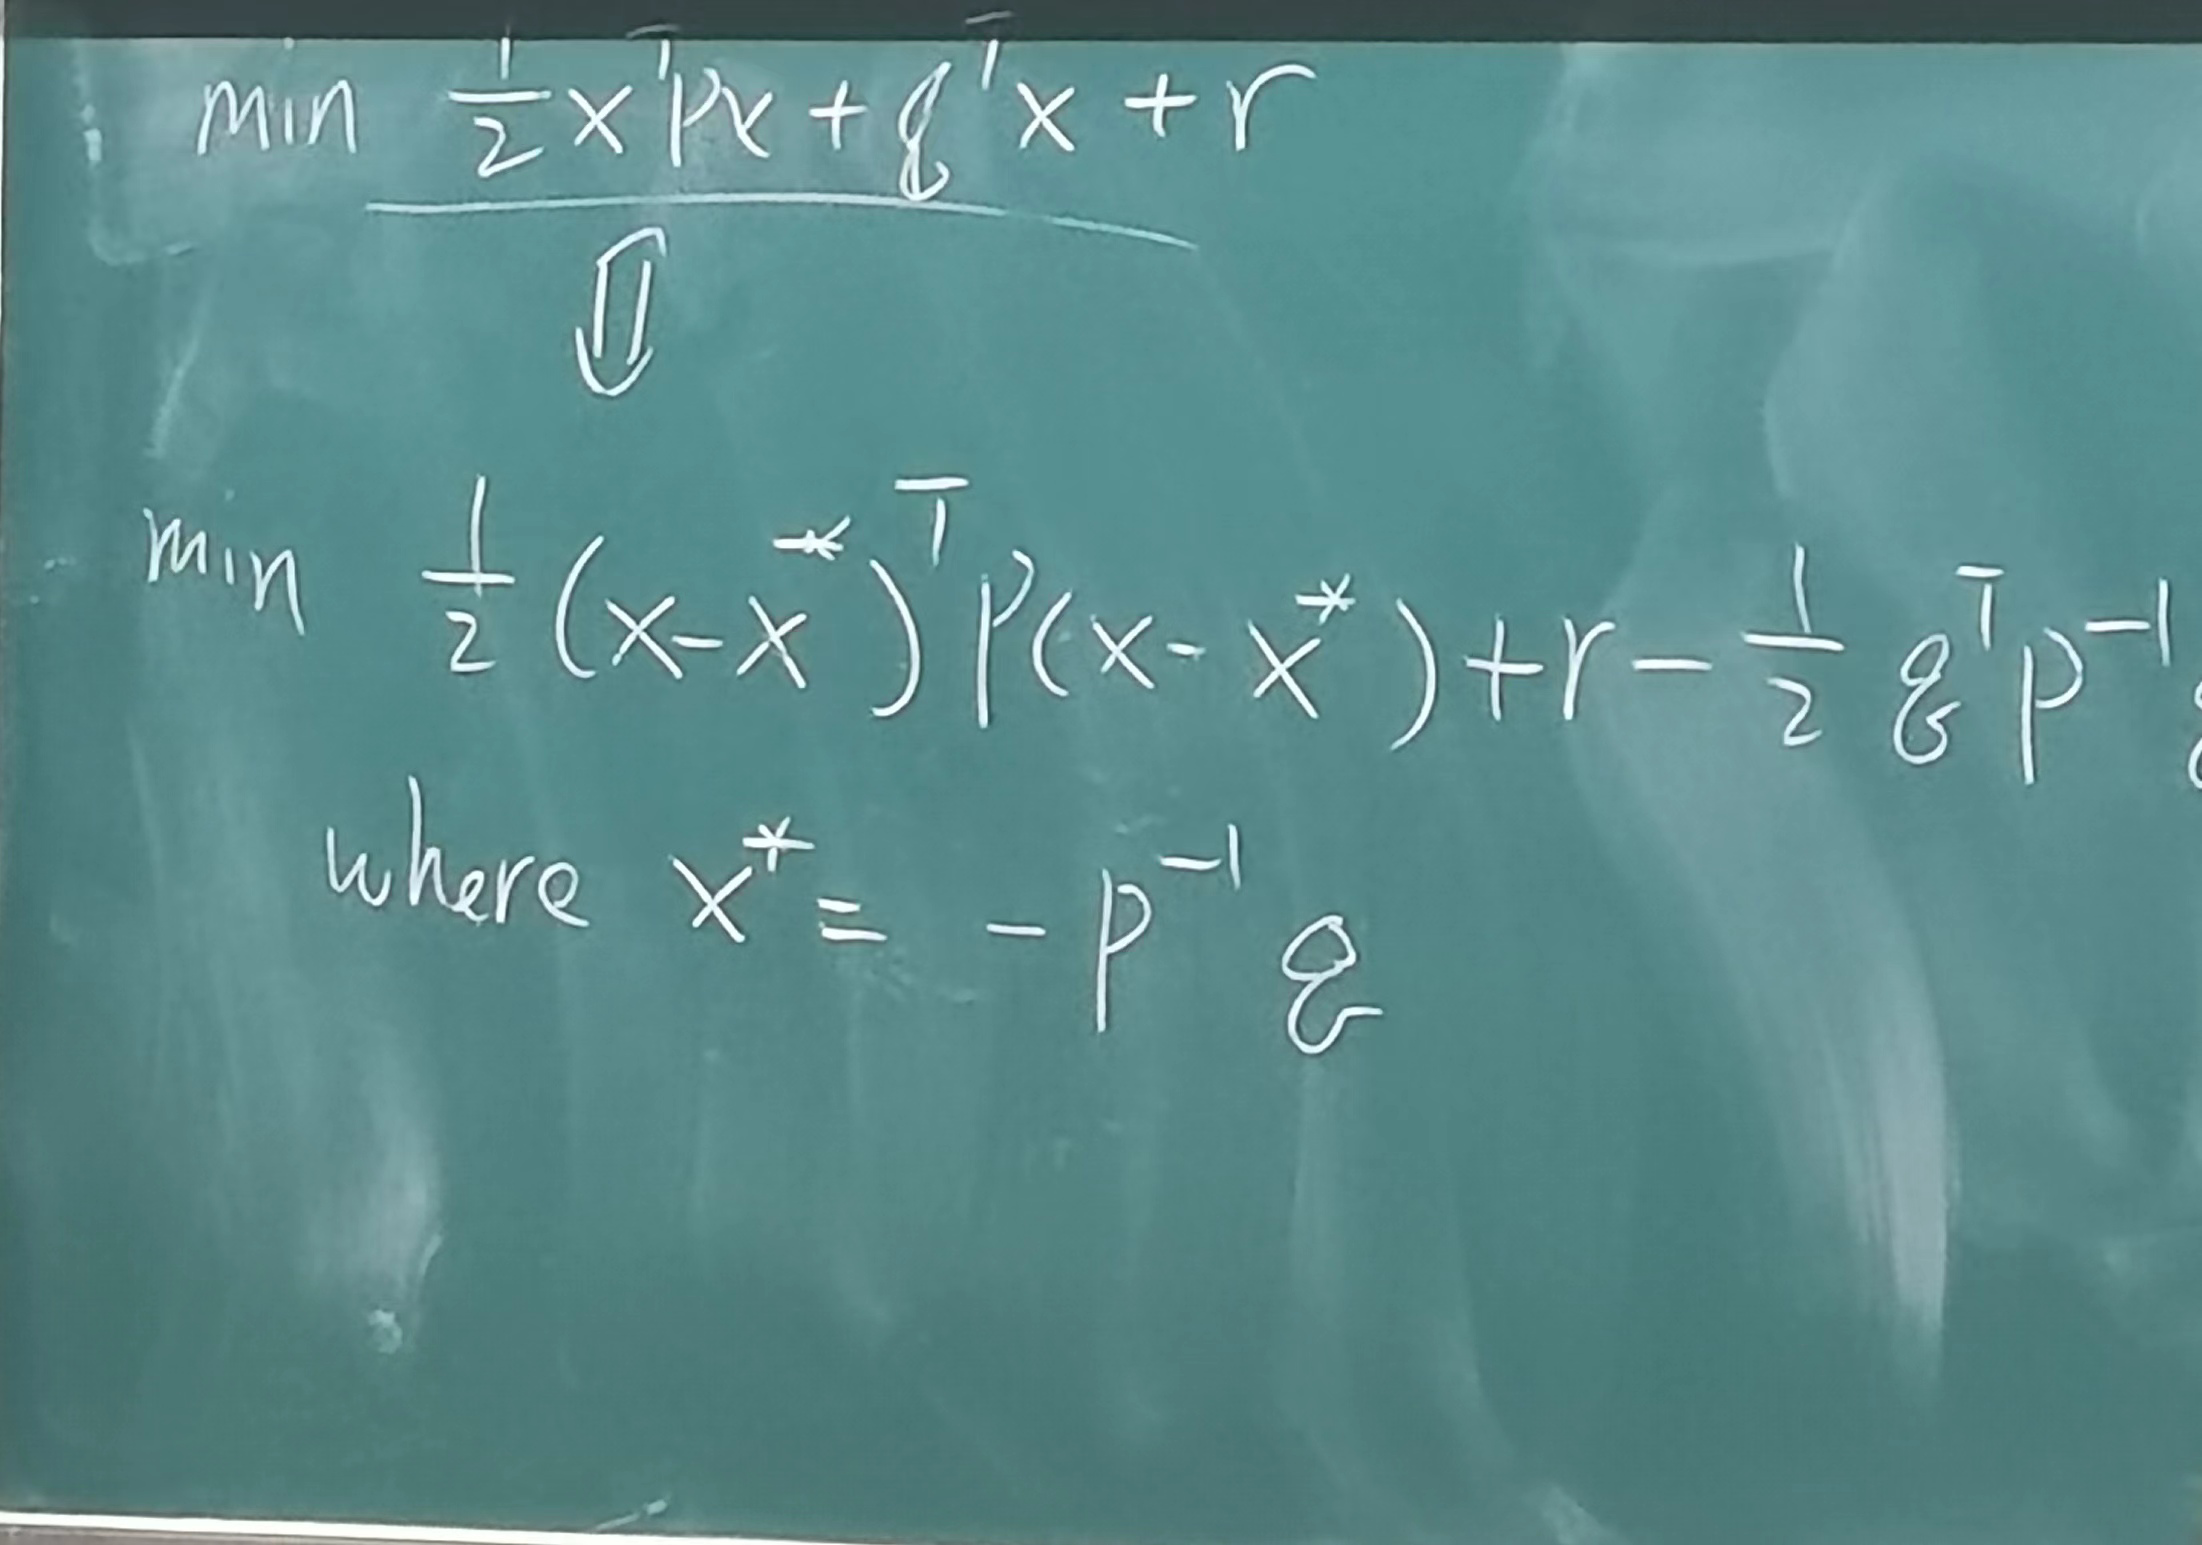 min ½ xᵀPx + qᵀx + r
⇓
min ½ (x-x*)ᵀP(x-x*) + r - ½ qᵀP⁻¹
where x* = -P⁻¹q